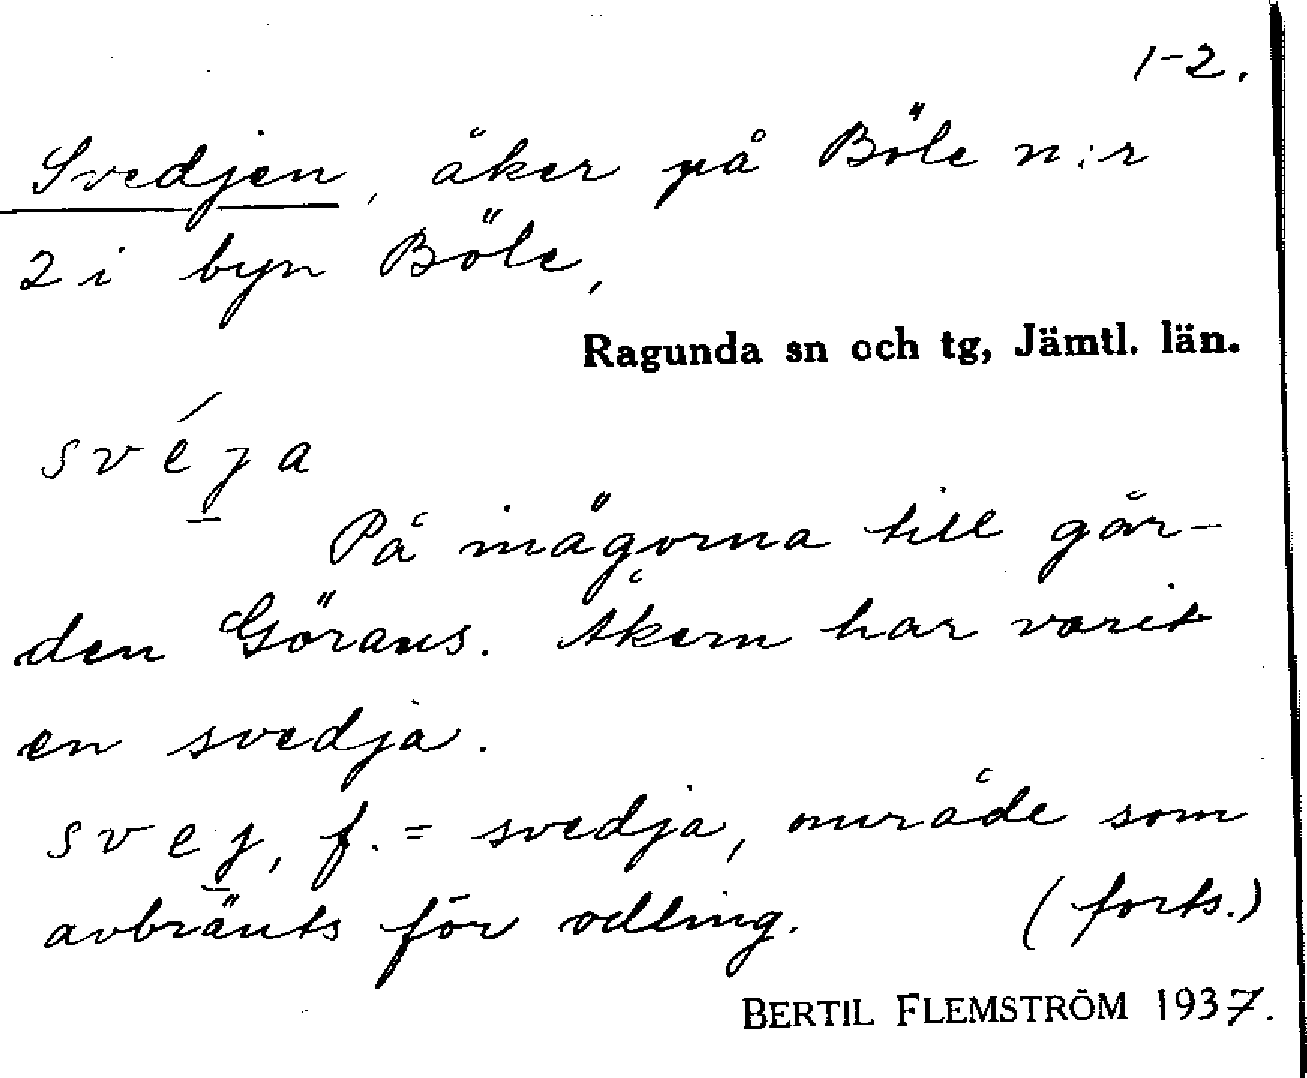 1-2.
Svedjen, åker på Böle n:r
2 i byn Böle,
Ragunda sn och tg, Jämtl. län.
svéȷa
På inägorna till går-
den Görans. Åkern har varit
en svedja.
sveȷ, f. = svedja, område som
avbränts för odling. (forts.)
BERTIL FLEMSTRÖM 1937.